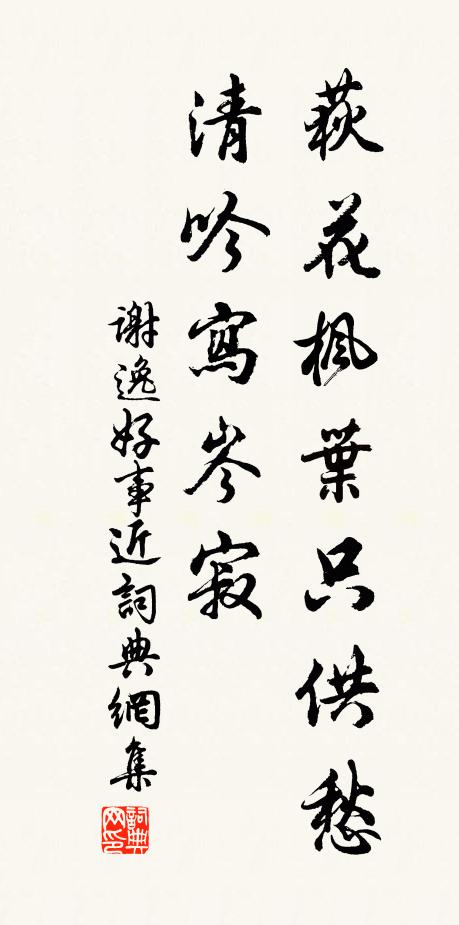 荻花楓葉只供愁
清吟寫岑寂
謝逸好事近詞典網集
詞典
网印